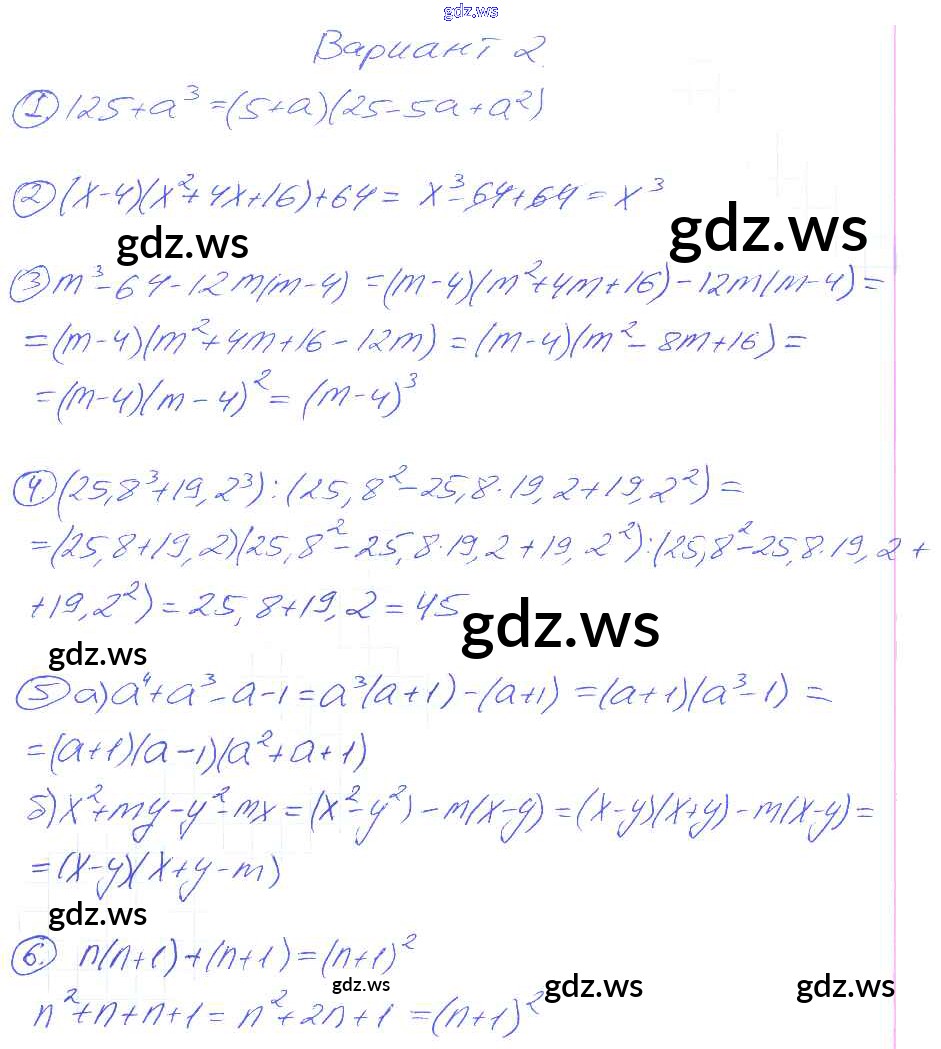 gdz.ws
Вариант 2.
① 125+a³=(5+a)(25-5a+a²)
② (x-4)(x²+4x+16)+64= x³-64+64=x³
gdz.ws
gdz.ws
③ m³-64-12m(m-4)=(m-4)(m²+4m+16)-12m(m-4)=
=(m-4)(m²+4m+16-12m)=(m-4)(m²-8m+16)=
=(m-4)(m-4)²=(m-4)³
④ (25,8³+19,2³):(25,8²-25,8·19,2+19,2²)=
=(25,8+19,2)(25,8²-25,8·19,2+19,2²):(25,8²-25,8·19,2+
+19,2²)=25,8+19,2=45
gdz.ws
gdz.ws
⑤ а) a⁴+a³-a-1=a³(a+1)-(a+1)=(a+1)(a³-1)=
=(a+1)(a-1)(a²+a+1)
б) x²+my-y²-mx=(x²-y²)-m(x-y)=(x-y)(x+y)-m(x-y)=
=(x-y)(x+y-m)
gdz.ws
⑥. n(n+1)+(n+1)=(n+1)²
gdz.ws
gdz.ws
gdz.ws
n²+n+n+1=n²+2n+1=(n+1)²